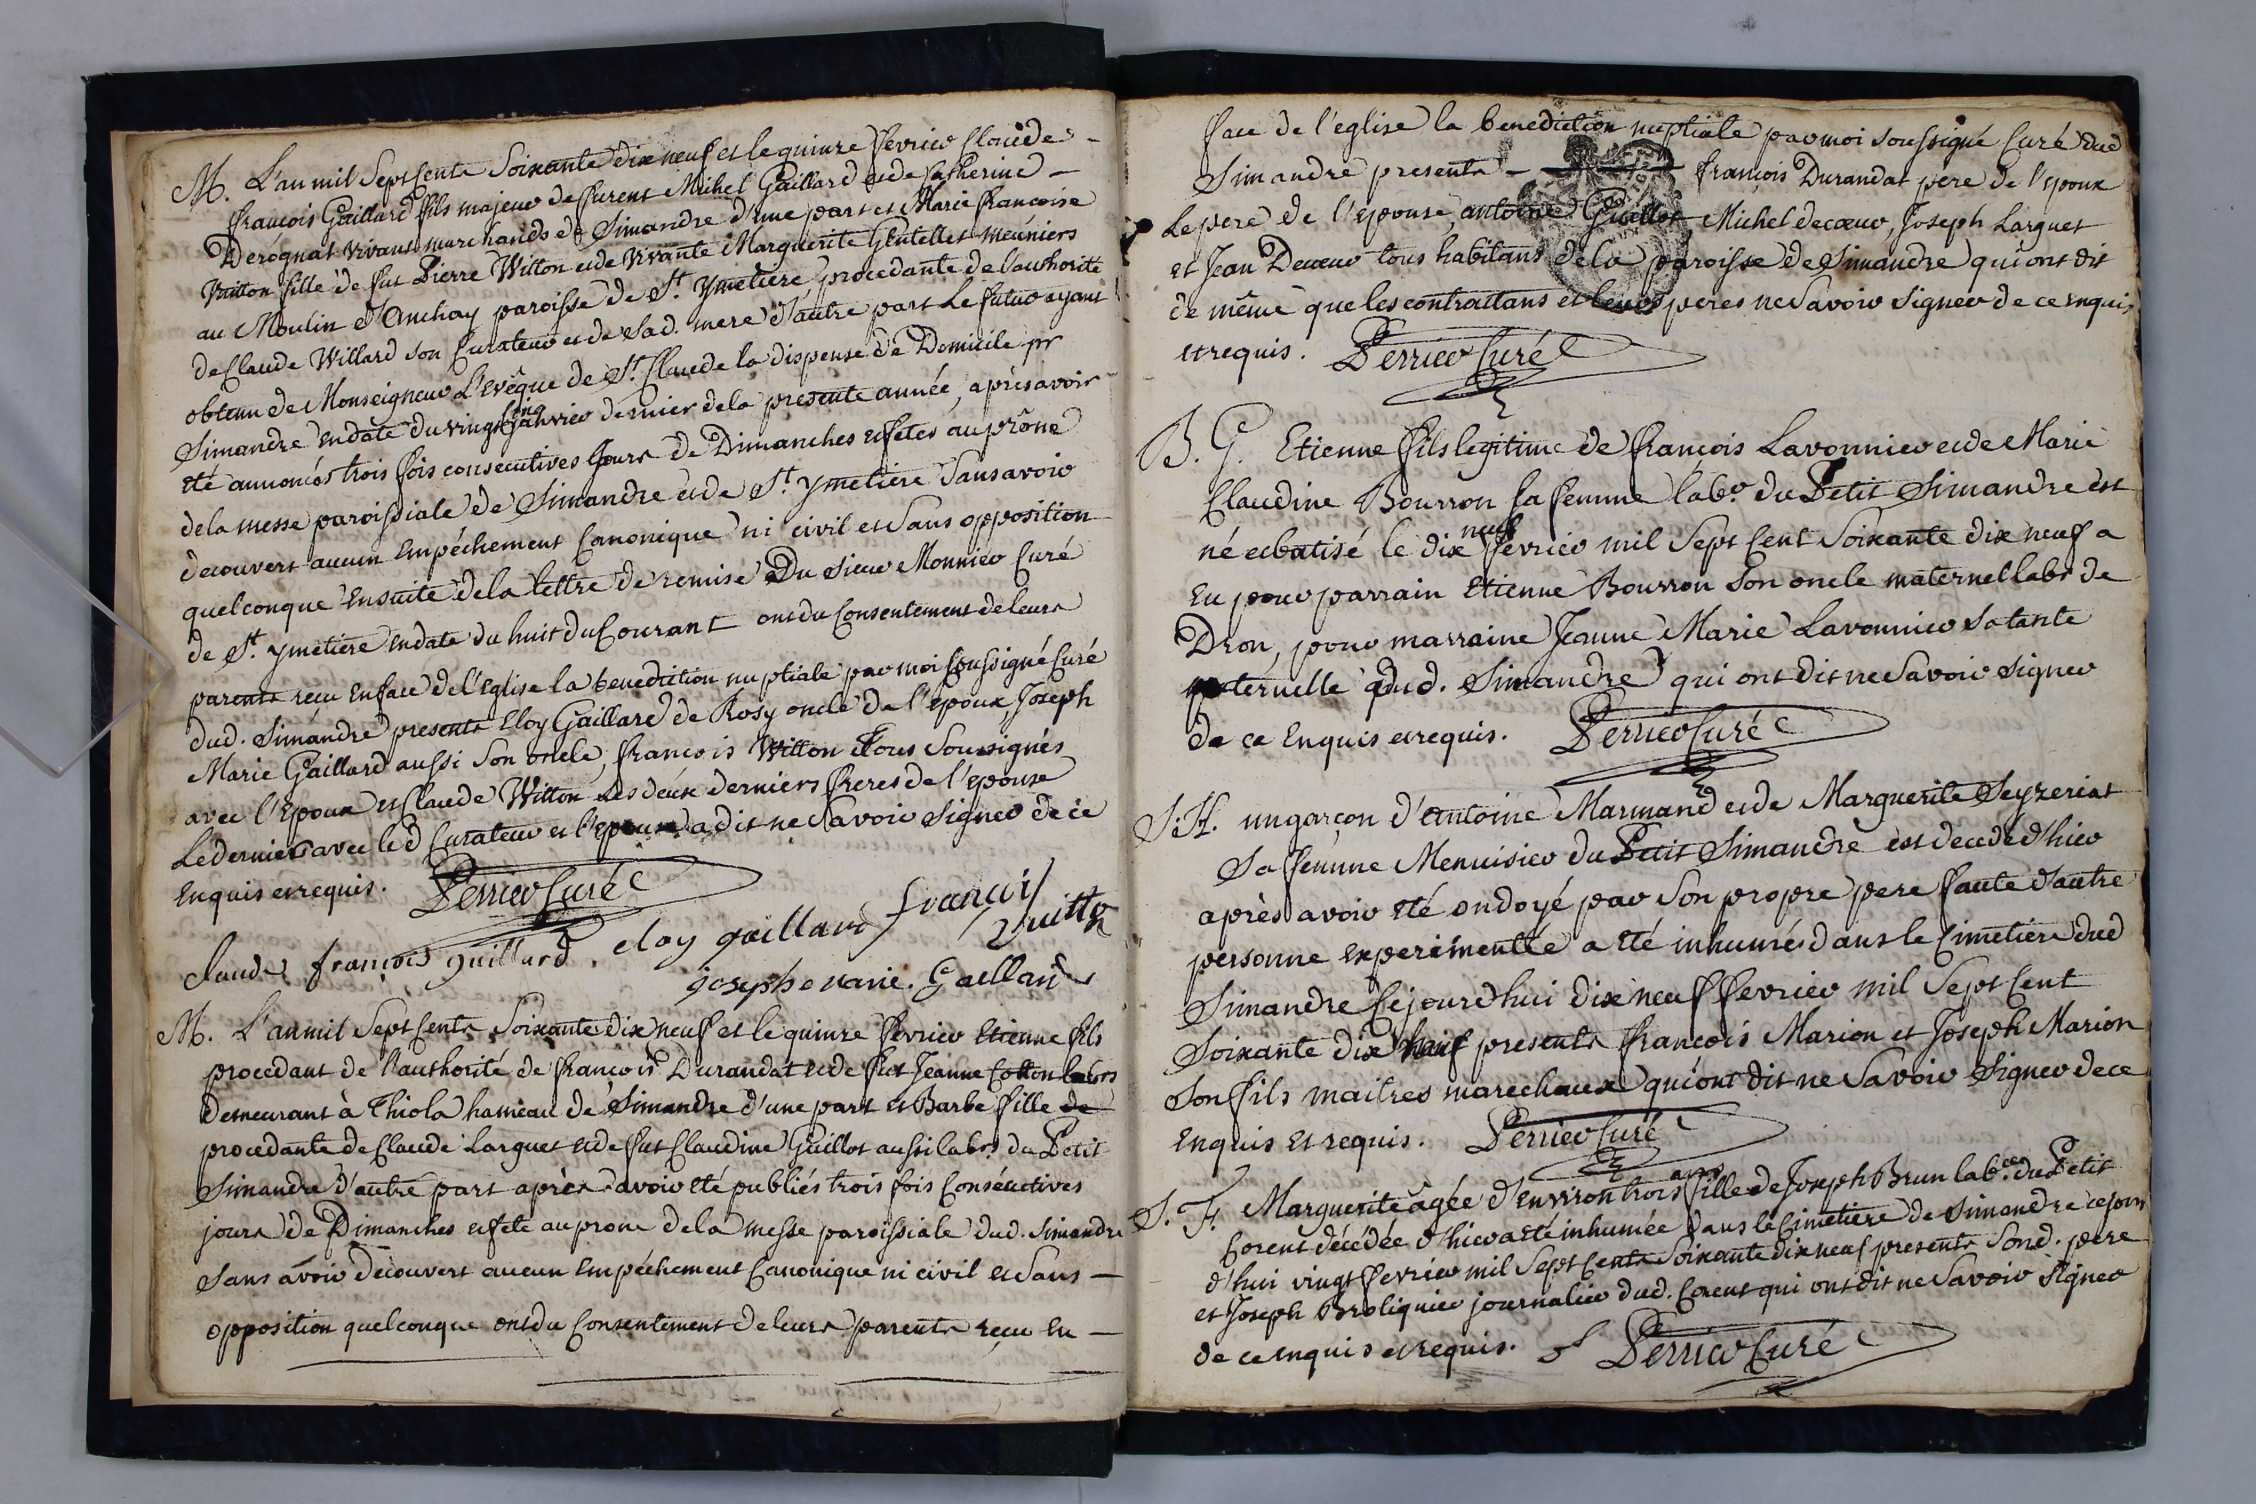 M. L'an mil Sept Cents Soixante dix neuf et le quinze fevrier Claude -
francois Gaillard fils majeur de furent Michel Gaillard et de Catherine -
Derognat vivants marchands de Simandre d'une part et Marie francoise
Vuitton fille de fut Pierre Witton et de vivante Marguerite Gentellet meúniers
au Moulin d'Anchay paroisse de St. ymetiere procedante de l'authorité
de Claude Willard son Curateur et de Sad. mere d'autre part Le futur ayant
obtenu de Monseigneur L'evêque de St. Claude la dispense de Domicile pr
Simandre en date du vingt cinq Janvier dernier de la presente année, après avoir
eté annoncés trois fois consecutives Jours de Dimanches et fetes au prône
de la messe paroissiale de Simandre et de St. ymetiere Sans avoir
decouvert aucun Empéchement Canonique ni civil et Sans opposition
quelconque ensuite de la lettre de remise Du Sieur Monnier Curé
de St. ymetiere en date du huit du Courant ont du Consentement de leurs
parents reçu en face de l'Eglise la benediction nuptiale par moi Soussigné Curé
dud. Simandre presents Eloy Gaillard de Rosy oncle de l'epoux, Joseph
Marie Gaillard aussi Son oncle, francois Witton Tous Soussignés
avec l'Epoux et Claude Witton Les deux derniers freres de l'epouse
Le dernier avec led Curateur et l'epouse a dit ne Savoir Signer de ce
Enquis et requis. Perrier Curé
claude françois guillard. eloy gaillard francois vuitton
joseph marie. Gaillard
M. L'an mil Sept Cents Soixante dix neuf et le quinze fevrier Etienne fils
procedant de l'authorité de francois Durandat et de fut Jeanne Cotton labrs
demeurant à Thiola hameau de Simandre d'une part et Barbe fille de
procedante de Claude Larguet et de fut Claudine Guillot aussi labrs du Petit
Simandre d'autre part après avoir eté publiés trois fois Consécutives
jours de Dimanches et fete au prone de la messe paroissiale dud. Simandre
Sans avoir decouvert aucun Empéchement Canonique ni civil et Sans -
opposition quelconque ont du Consentement de leurs parents reçu en -
face de l'eglise la benediction nuptiale par moi soussigné Curé dud
Simandre presents - françois Durandat pere de l'epoux
Le pere de l'epouse, antoine Guillot, Michel decœur, Joseph Larguet
et Jean Decœur tous habitans de la paroisse de Simandre qui ont dit
de même que les contrattans et leurs peres ne Savoir Signer de ce enquis
et requis. Perrier Curé
B. G. Etienne fils legitime de françois Lavonnier et de Marie
Claudine Bourron sa femme labr. du Petit Simandre est
né et batisé le dix neuf fevrier mil Sept Cent Soixante dix neuf a
Eu pour parrain Etienne Bourron Son oncle maternel labr de
Dron, pour marraine Jeanne Marie Lavonnier Sa tante
paternelle dud. Simandre qui ont dit ne Savoir Signer
de ce Enquis et requis. Perrier Curé
S. H. un garçon d'antoine Marmand et de Marguerite Seyzeriat
Sa femme Menuisier du Petit Simandre est decedé d'hier
après avoir eté ondoyé par Son propre pere faute d'autre
personne experimentée a eté inhumé dans le Cimetiere dud
Simandre Cejourdhui dix neuf fevrier mil Sept Cent
Soixante dix neuf presents françois Marion et Joseph Marion
Son fils maitres marechaux qui ont dit ne Savoir Signer de ce
Enquis Et requis. Perrier Curé
S. F. Marguerite agée d'environ trois ans fille de Joseph Brun labr. du Petit
Corent décédée d'hier a eté inhumée dans le Cimetiere de Simandre cejour
d'hui vingt fevrier mil Sept Cents Soixante dix neuf presents Sond. pere
et Joseph Broliquier journalier dud. Corent qui ont dit ne Savoir Signer
de ce enquis et requis. Perrier Curé